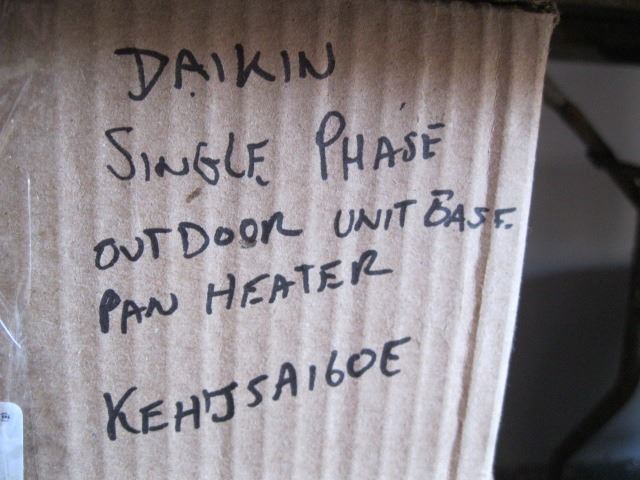 DAIKIN
SINGLE PHASE
OUTDOOR UNIT BASE
PAN HEATER
KEHJ5A160E